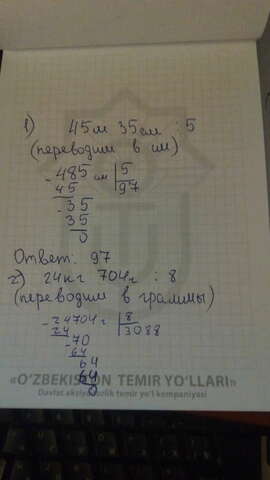 1) 45м 35см : 5
(переводим в см)
- 485 см | 5
45 97
- 35
35
0
Ответ: 97
2) 24кг 704г : 8
(переводим в граммы)
- 24704 г | 8
24 3088
- 70
64
64
64
0
«O‘ZBEKISTON TEMIR YO‘LLARI»
Davlat aksiyadorlik temir yo‘l kompaniyasi